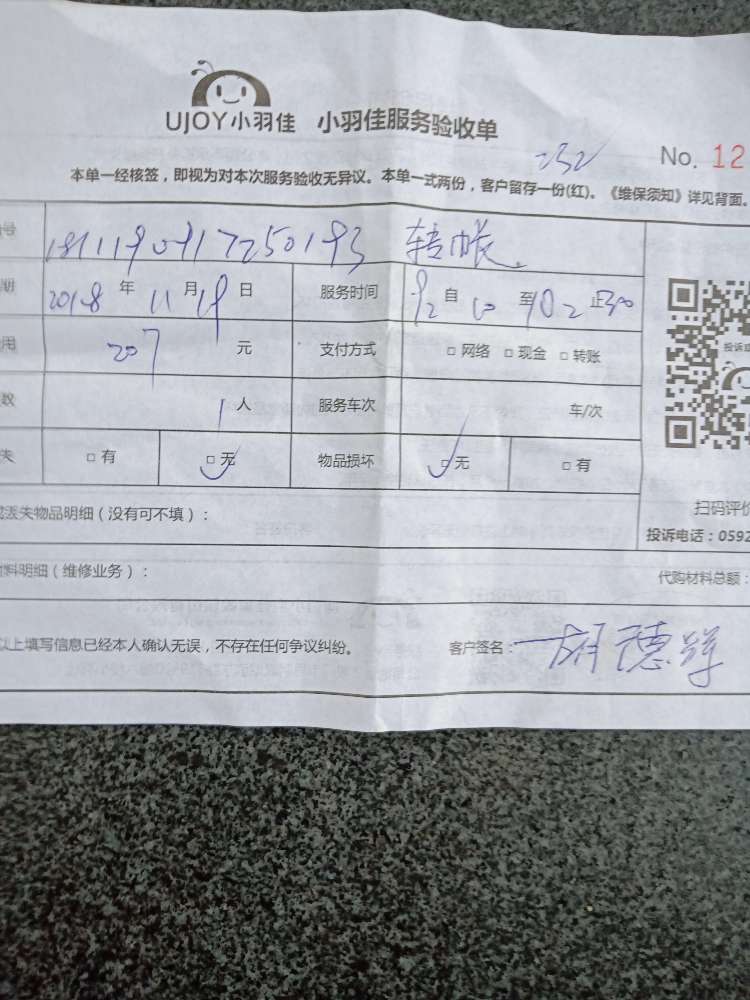 UJOY小羽佳 小羽佳服务验收单
No. 12
本单一经核签，即视为对本次服务验收无异议。本单一式两份，客户留存一份(红)。《维保须知》详见背面。
号 转帐
期 2018年11月19日 服务时间 自 至
用 207元 支付方式 □ 网络 □ 现金 □ 转账
数 1人 服务车次 车/次
失 □ 有 □ 无 物品损坏 □ 无 □ 有
投诉
扫码评价
投诉电话：0592
丢失物品明细（没有可不填）：
料明细（维修业务）： 代购材料总额：
以上填写信息已经本人确认无误，不存在任何争议纠纷。 客户签名：胡德辉